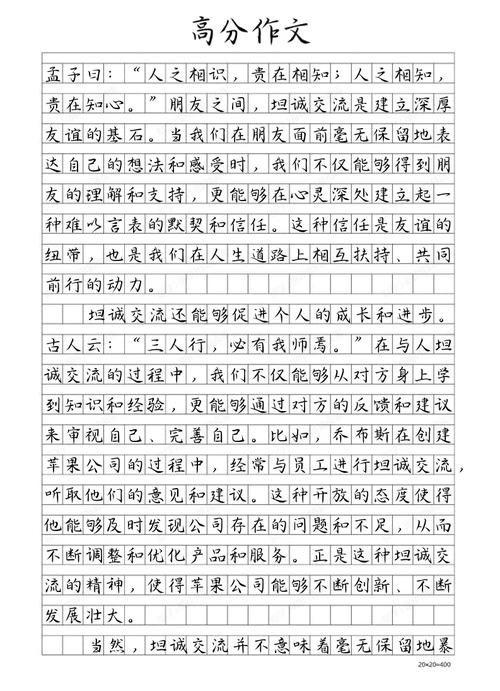 高分作文
孟子曰：“人之相识，贵在相知；人之相知，
贵在知心。”朋友之间，坦诚交流是建立深厚
友谊的基石。当我们在朋友面前毫无保留地表
达自己的想法和感受时，我们不仅能够得到朋
友的理解和支持，更能够在心灵深处建立起一
种难以言表的默契和信任。这种信任是友谊的
纽带，也是我们在人生道路上相互扶持、共同
前行的动力。
坦诚交流还能够促进个人的成长和进步。
古人云：“三人行，必有我师焉。”在与人坦
诚交流的过程中，我们不仅能够从对方身上学
到知识和经验，更能够通过对方的反馈和建议
来审视自己、完善自己。比如，乔布斯在创建
苹果公司的过程中，经常与员工进行坦诚交流，
听取他们的意见和建议。这种开放的态度使得
他能够及时发现公司存在的问题和不足，从而
不断调整和优化产品和服务。正是这种坦诚交
流的精神，使得苹果公司能够不断创新、不断
发展壮大。
当然，坦诚交流并不意味着毫无保留地暴
20×20=400